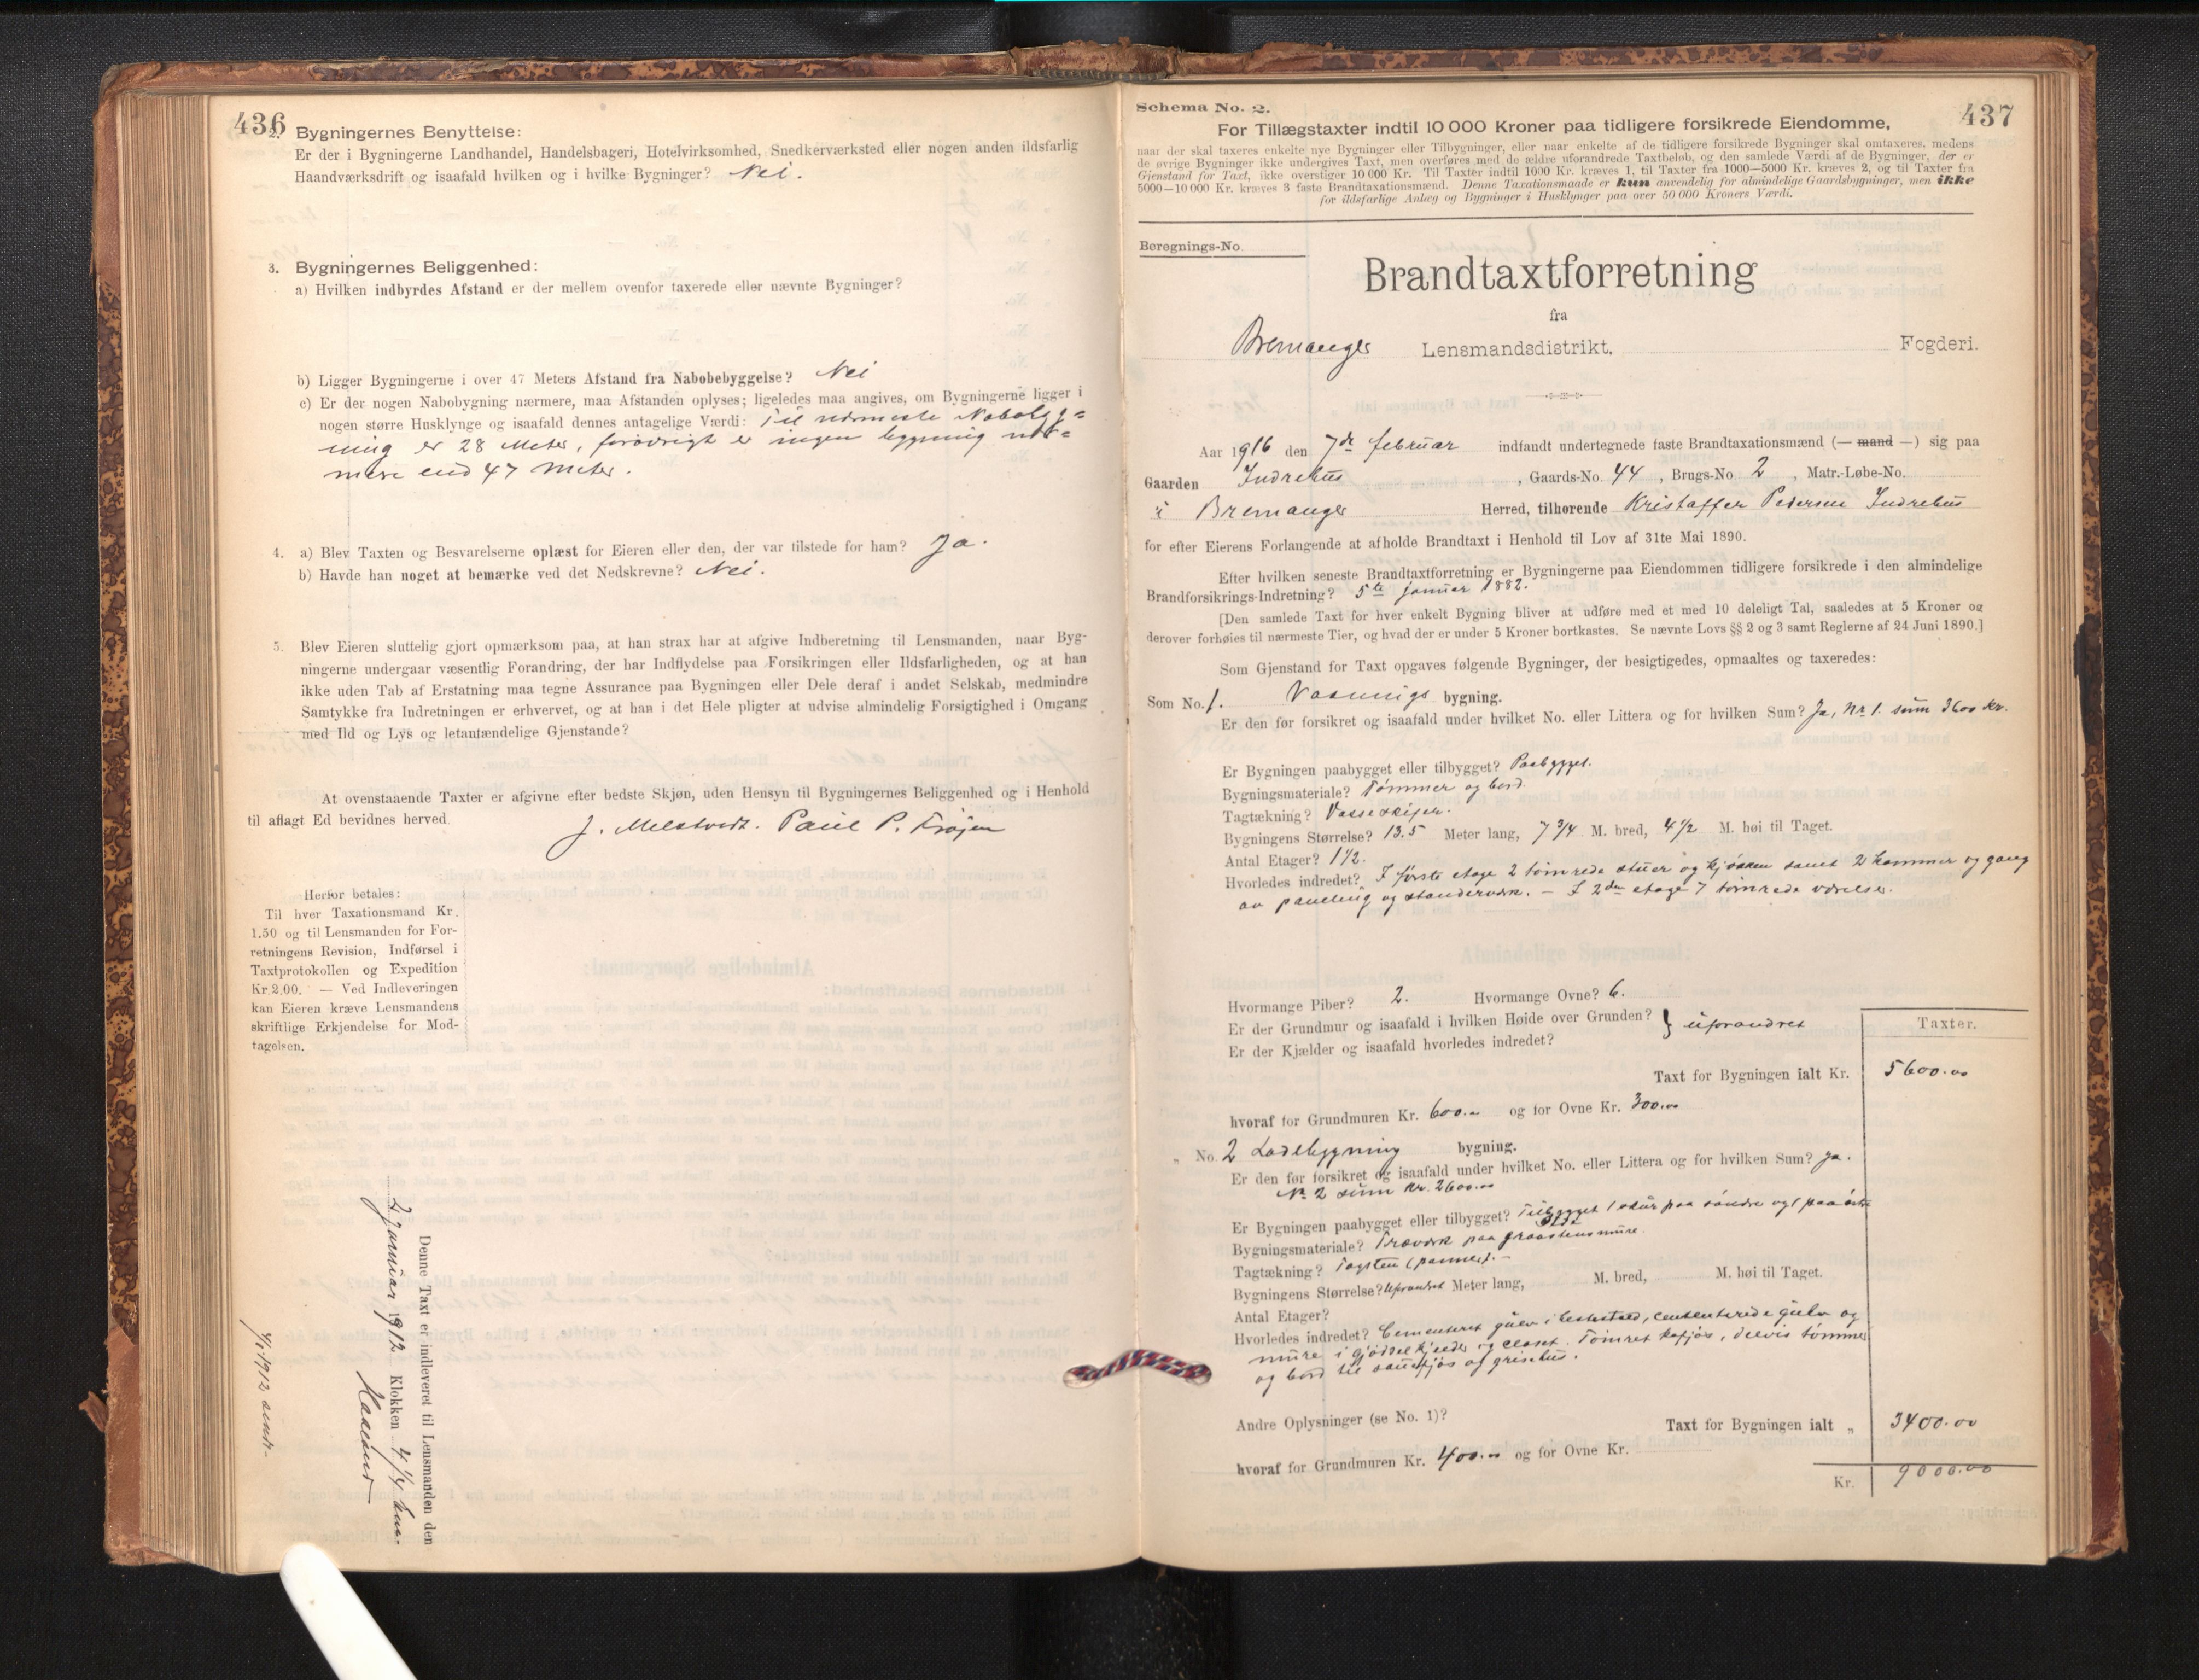 436
2. Bygningernes Benyttelse:
Er der i Bygningerne Landhandel, Handelsbageri, Hotelvirksomhed, Snedkerværksted eller nogen anden ildsfarlig
Haandværksdrift og isaafald hvilken og i hvilke Bygninger? Nei.
3. Bygningernes Beliggenhed:
a) Hvilken indbyrdes Afstand er der mellem ovenfor taxerede eller nævnte Bygninger?
b) Ligger Bygningerne i over 47 Meters Afstand fra Nabobebyggelse? Nei
c) Er der nogen Nabobygning nærmere, maa Afstanden oplyses; ligeledes maa angives, om Bygningerne ligger i
nogen større Husklynge og isaafald dennes antagelige Værdi: Til nærmeste Nabobyg=
ning er 28 Meter, forøvrigt er ingen bygning nær=
mere end 47 Meter.
4. a) Blev Taxten og Besvarelserne oplæst for Eieren eller den, der var tilstede for ham? Ja.
b) Havde han noget at bemærke ved det Nedskrevne? Nei.
5. Blev Eieren sluttelig gjort opmærksom paa, at han strax har at afgive Indberetning til Lensmanden, naar Byg-
ningerne undergaar væsentlig Forandring, der har Indflydelse paa Forsikringen eller Ildsfarligheden, og at han
ikke uden Tab af Erstatning maa tegne Assurance paa Bygningen eller Dele deraf i andet Selskab, medmindre
Samtykke fra Indretningen er erhvervet, og at han i det Hele pligter at udvise almindelig Forsigtighed i Omgang
med Ild og Lys og letantændelige Gjenstande?
At ovenstaaende Taxter er afgivne efter bedste Skjøn, uden Hensyn til Bygningernes Beliggenhed og i Henhold
til aflagt Ed bevidnes herved.
J. Melstvedt. Paul P. Frøjen
Herfor betales:
Til hver Taxationsmand Kr.
1.50 og til Lensmanden for For-
retningens Revision, Indførsel i
Taxtprotokollen og Expedition
Kr. 2.00. — Ved Indleveringen
kan Eieren kræve Lensmandens
skriftlige Erkjendelse for Mod-
tagelsen.
Denne Taxt er indleveret til Lensmanden den
2 januar 1912 Klokken 4 1/4
4/1 1912 sendt-
437
Schema No. 2.
For Tillægstaxter indtil 10 000 Kroner paa tidligere forsikrede Eiendomme,
naar der skal taxeres enkelte nye Bygninger eller Tilbygninger, eller naar enkelte af de tidligere forsikrede Bygninger skal omtaxeres, medens
de øvrige Bygninger ikke undergives Taxt, men overføres med de ældre uforandrede Taxtbeløb, og den samlede Værdi af de Bygninger, der er
Gjenstand for Taxt, ikke overstiger 10 000 Kr. Til Taxter indtil 1000 Kr. kræves 1, til Taxter fra 1000—5000 Kr. kræves 2, og til Taxter fra
5000—10 000 Kr. kræves 3 faste Brandtaxationsmænd. Denne Taxationsmaade er kun anvendelig for almindelige Gaardsbygninger, men ikke
for ildsfarlige Anlæg og Bygninger i Husklynger paa over 50 000 Kroners Værdi.
Beregnings-No.
Brandtaxtforretning
fra
Bremanger Lensmandsdistrikt, Fogderi.
Aar 1916 den 7de februar indfandt undertegnede faste Brandtaxationsmænd (— mand —) sig paa
Gaarden Indrehus, Gaards-No. 44, Brugs-No. 2, Matr.-Løbe-No.
i Bremanger Herred, tilhørende Kristoffer Pedersen Indrehus
for efter Eierens Forlangende at afholde Brandtaxt i Henhold til Lov af 31te Mai 1890.
Efter hvilken seneste Brandtaxtforretning er Bygningerne paa Eiendommen tidligere forsikrede i den almindelige
Brandforsikrings-Indretning? 5te januar 1882.
[Den samlede Taxt for hver enkelt Bygning bliver at udføre med et med 10 deleligt Tal, saaledes at 5 Kroner og
derover forhøies til nærmeste Tier, og hvad der er under 5 Kroner bortkastes. Se nævnte Lovs §§ 2 og 3 samt Reglerne af 24 Juni 1890.]
Som Gjenstand for Taxt opgaves følgende Bygninger, der besigtigedes, opmaaltes og taxeredes:
Som No. 1. Vaanings bygning.
Er den før forsikret og isaafald under hvilket No. eller Littera og for hvilken Sum? Ja, Nr 1. sum 3600 kr.
Er Bygningen paabygget eller tilbygget? Paabygget.
Bygningsmateriale? Tømmer og bord.
Tagtækning?
Bygningens Størrelse? 13.5 Meter lang, 7 3/4 M. bred, 4 1/2 M. høi til Taget.
Antal Etager? 1 1/2.
Hvorledes indredet? I første etage 2 tømrede stuer og kjøkken samt 2 kammer og gang
av paneling og standerverk. — I 2den etage 7 tømrede værelser.
Hvormange Piber? 2. Hvormange Ovne? 6.
Er der Grundmur og isaafald i hvilken Høide over Grunden? } uforandret
Er der Kjælder og isaafald hvorledes indredet?
Taxter.
Taxt for Bygningen ialt Kr. 5600.00
hvoraf for Grundmuren Kr. 600.00 og for Ovne Kr. 300.00
„ No. 2 Ladebygning bygning.
Er den før forsikret og isaafald under hvilket No. eller Littera og for hvilken Sum? Ja.
Nr 2 sum kr. 2600.00
Er Bygningen paabygget eller tilbygget? Tilbygget 1 skur paa søndre og 1 paa østre
side
Bygningsmateriale? Træverk paa graastensmure.
Tagtækning? Tagsten (panner). -
Bygningens Størrelse? Uforandret Meter lang, M. bred, M. høi til Taget.
Antal Etager?
Hvorledes indredet? Cementeret gulv i hestestald, cementerede gulv og
mure i gjødselkjelder og closet. Tømret kofjøs, delvis tømmer
og bord til sauefjøs og grisehus.
Andre Oplysninger (se No. 1)? Taxt for Bygningen ialt „ 3400.00
hvoraf for Grundmuren Kr. 400.00 og for Ovne Kr.
Kr. 9000.00